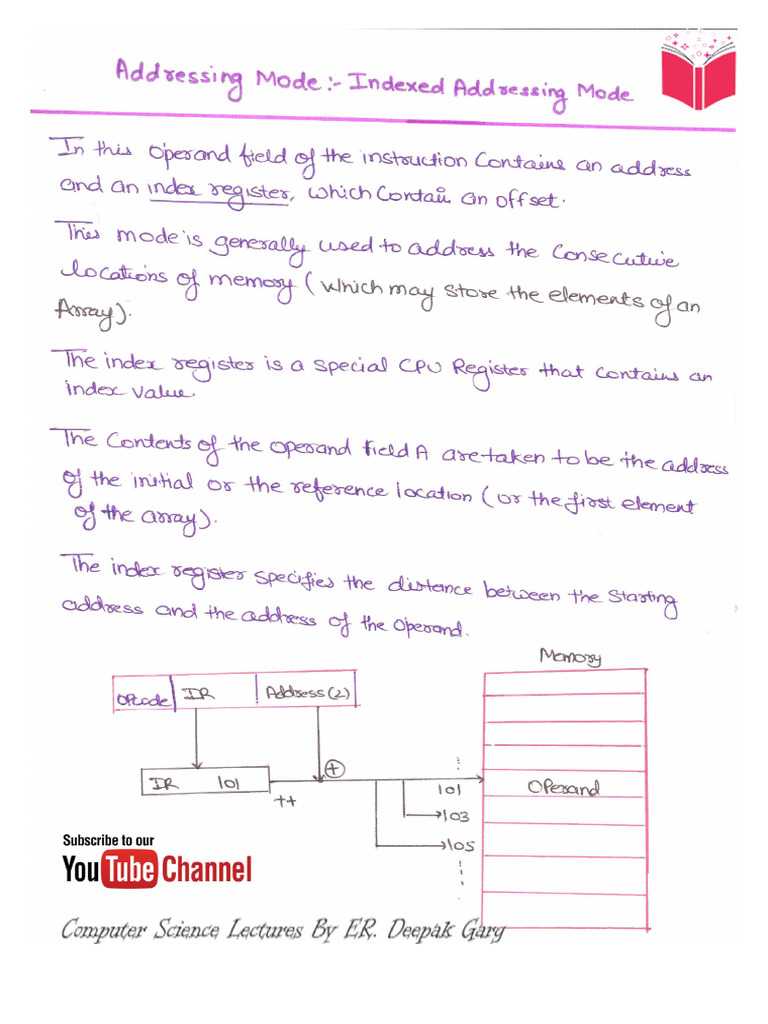 Addressing Mode :- Indexed Addressing Mode
In this operand field of the instruction contains an address
and an index register, which contain an offset.
This mode is generally used to address the consecutive
locations of memory (which may store the elements of an
Array).
The index register is a special CPU Register that contains an
index value.
The Contents of the operand field A are taken to be the address
of the initial or the reference location (or the first element
of the array).
The index register specifies the distance between the starting
address and the address of the operand.
Memory
Opcode IR Address(2)
+
IR 101
++
101
Operand
103
105
Subscribe to our
YouTube Channel
Computer Science Lectures By ER. Deepak Garg